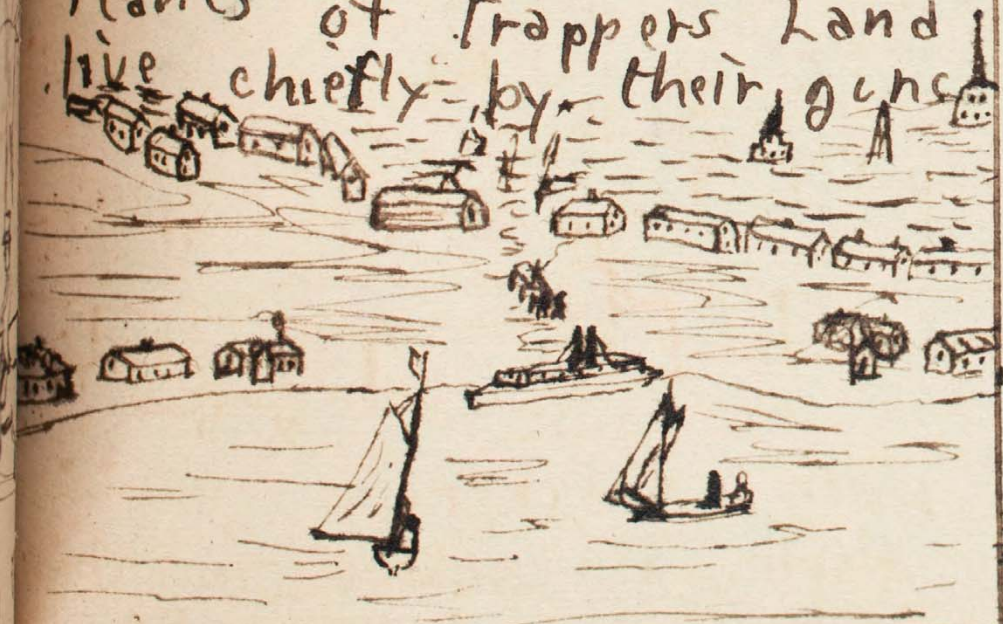 of Trappers Land
live chiefly by their guns